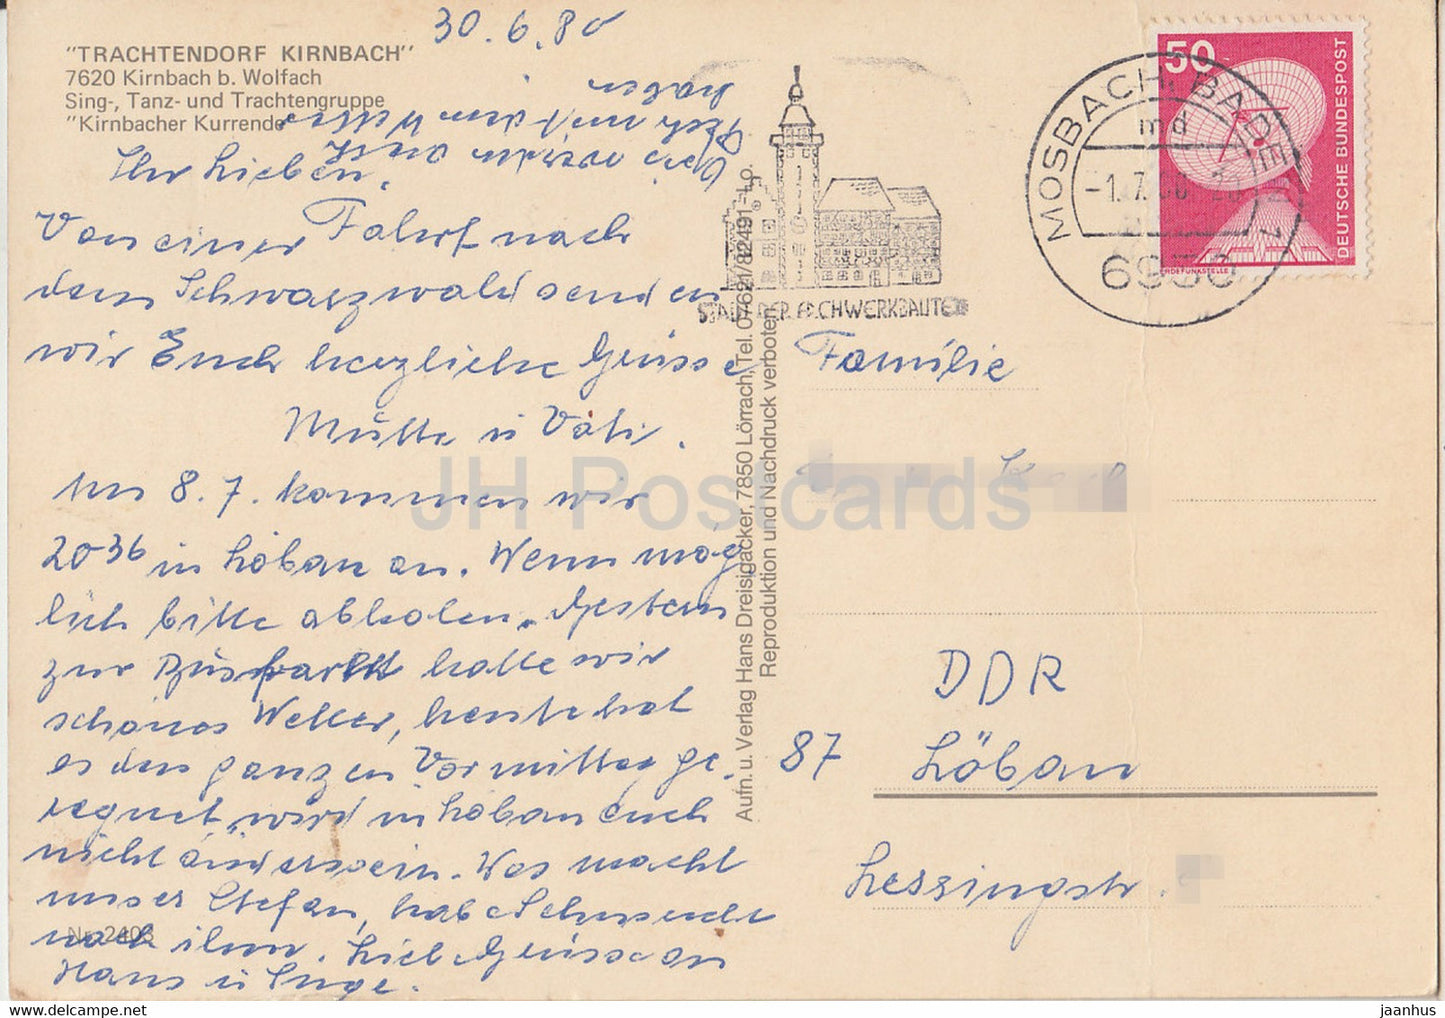 30.6.80
"TRACHTENDORF KIRNBACH"
7620 Kirnbach b. Wolfach
Sing-, Tanz- und Trachtengruppe
"Kirnbacher Kurrende"
Ihr Lieben.
Von einer Fahrt nach
dem Schwarzwald senden
wir Euch herzliche Grüsse
Mutti u Vati.
Am 8.7. kommen wir
2036 in Löbau an. Wenn mög
lich bitte abholen. Gestern
zur hatte wir
schönes Wetter, heute hat
es den ganzen Vormittag ge-
regnet, wird in Löbau auch
nicht anders sein. Was macht
unser Stefan, habe Sehnsucht
nach ihm. Liebe Grüsse an
Hans u Inge.
Nr. 2403
Aufn. u. Verlag Hans Dreisigacker, 7850 Lörrach, Tel. 07621/82491-Lo.
Reproduktion und Nachdruck verboten
STADT DER FACHWERKBAUTEN
MOSBACH, BADEN 1
md
-1.7.80
6950
50
DEUTSCHE BUNDESPOST
ERDEFUNKSTELLE
Familie
DDR
87 Löbau
Lessingstr.
JH Postcards
jaanhus